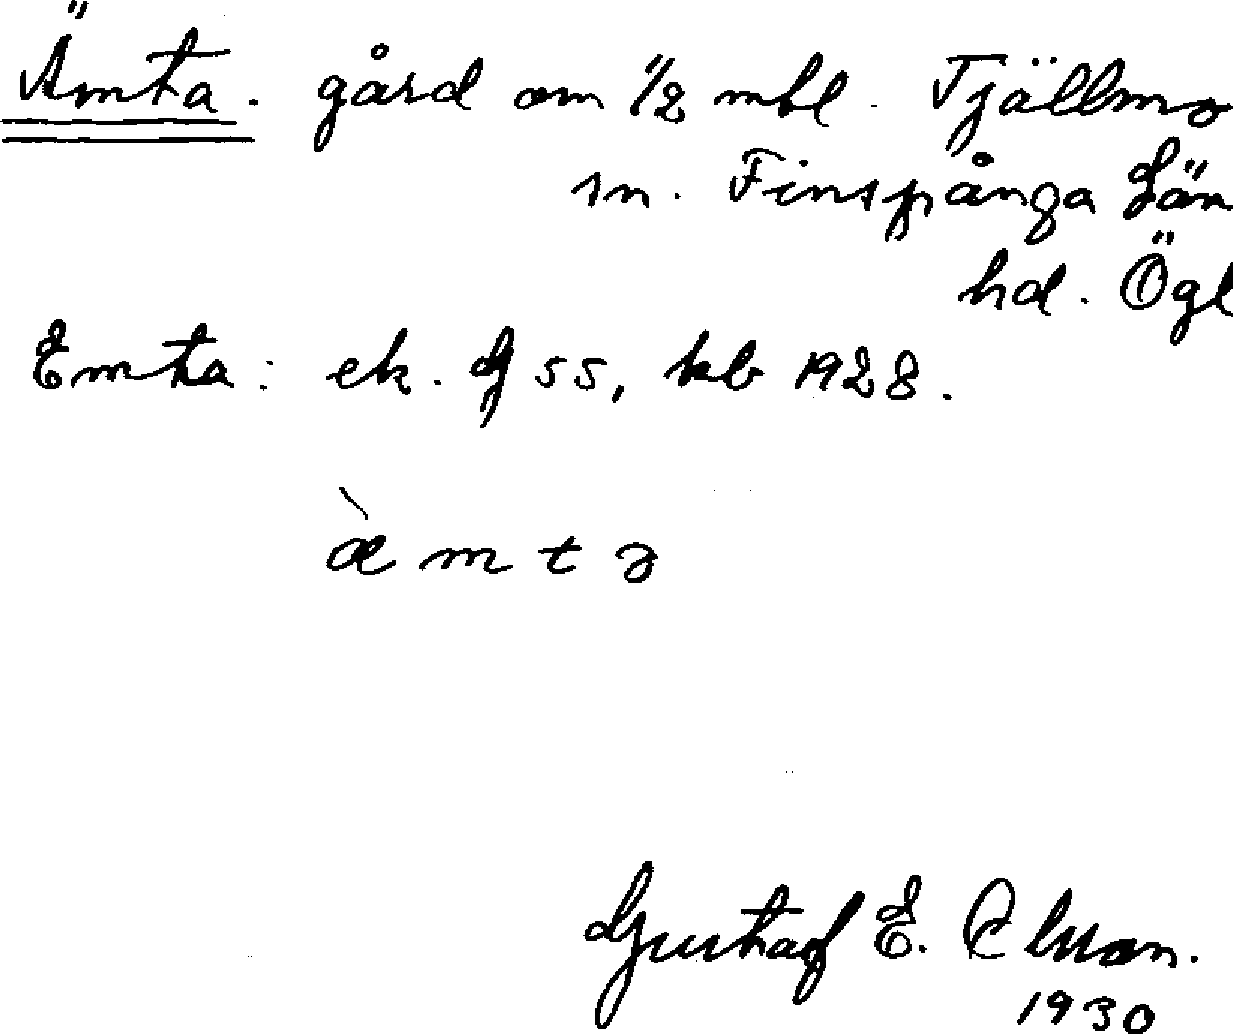 Ämta. gård om 1/2 mtl. Tjällmo
sn. Finspånga Län
hd. Ögl
Emta: ek. G 55, kb 1928.
æ̀ m t a
Gustaf E. Olsson.
1930